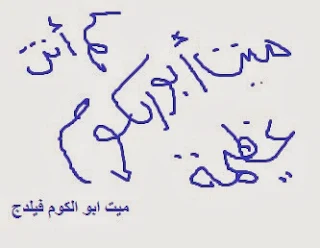 كم أنت
ميت أبو الكوم
عظيمة
ميت ابو الكوم فيلدج